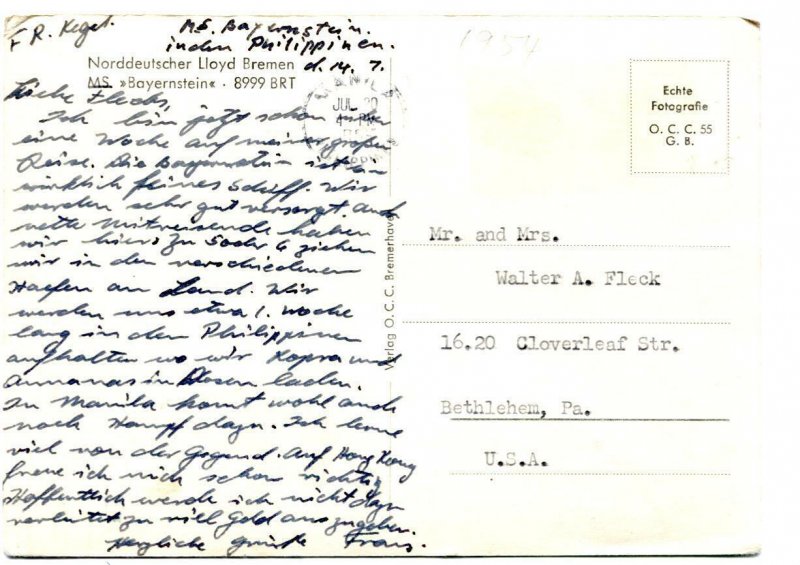 F. R. Kegel. MS. Bayernstein.
in den Philippinen.
Norddeutscher Lloyd Bremen d. 14. 7.
MS. »Bayernstein« · 8999 BRT
Liebe Flecks,
Ich bin jetzt schon über
eine Woche auf meiner großen
Reise. Die Bayernstein ist ein
wirklich feines Schiff. Wir
werden sehr gut versorgt. Auch
nette Mitreisende haben
wir hier. Zu 5 oder 6 ziehen
wir in den verschiedenen
Haefen an Land. Wir
werden uns etwa 1. Woche
lang in den Philippinen
aufhalten wo wir Kopra und
Annanas in Dosen laden.
In Manila kommt wohl auch
noch Hampf dazu. Ich lerne
viel von der Gegend. Auf Hong Kong
freue ich mich schon richtig
Hoffentlich werde ich nicht dazu
verleitet zu viel Geld auszugeben.
Herzliche Grüße Franz.
1954
MANILA
JUL 20
4 PM
Verlag O.C.C. Bremerhaven
Echte
Fotografie
O. C. C. 55
G. B.
Mr. and Mrs.
Walter A. Fleck
16.20 Cloverleaf Str.
Bethlehem, Pa.
U.S.A.